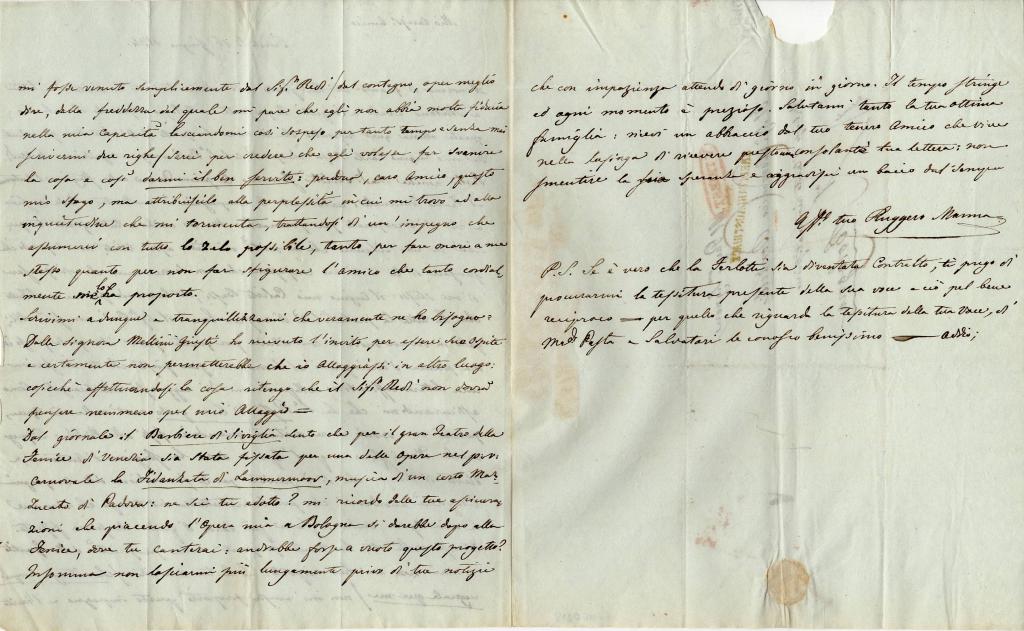 mi fosse venuto semplicemente dal Sigr. Redi / dal contegno, o per meglio
dire, dalla freddezza del quale mi pare che egli non abbia molta fiducia
nella mia capacità lasciandomi così sospeso per tanto tempo e senza mai
scrivermi due righe / sarei per credere che egli volesse far svanire
la cosa e così darmi il ben servito: perdona, caro Amico, questo
mio sfogo, ma attribuiscilo alla perplessità in cui mi trovo ed alla
inquietudine che mi tormenta, trattandosi di un' impegno che
assumerei con tutto lo zelo possibile, tanto per fare onore a me
stesso quanto per non far sfigurare l'amico che tanto cordial
mente lo ha proposto.
Scrivimi adunque e tranquillizzami che veramente ne ho bisogno:
Dalla Signora Mellini Giusti ho ricevuto l'invito per essere suo ospite
e certamente non permetterebbe che io alloggiassi in altro luogo:
cosicchè effettuandosi la cosa ritengo che il Sigr. Redi non dovrà
pensare nemmeno pel mio Alloggio =
Dal giornale il Barbiere di Siviglia sento che per il gran Teatro della
Fenice di Venezia sia stata fissata per una delle Opere nel pros.
Carnovale la Fidanzata di Lammermoor, musica di un certo Ma-
zucato di Padova: ne sei tu edotto? mi ricordo delle tue assicura-
zioni che piacendo l'Opera mia a Bologna si darebbe dopo alla
Fenice, dove tu canterai: andrebbe forse a vuoto questo progetto?
Insomma non lasciarmi più lungamente privo di tue notizie
che con impazienza attendo di giorno in giorno. Il tempo stringe
ed ogni momento è prezioso. Salutami tanto la tua ottima
famiglia: ricevi un abbaccio dal tuo tenero Amico che vive
nella lusinga di ricevere presto una consolante tua lettera: non
smentire la sua speranza e aggradisci un bacio dal sempre
Affo. tuo Ruggero Manna
P.S. Se è vero che la Ferlotti sia diventata Contralto, ti prego di
procurarmi la tessitura presente della sua voce e ciò pel bene
reciproco — per quello che riguarda la tessitura della tua voce, di
Mad. Pasta e Salvatori le conosco benissimo — addio;